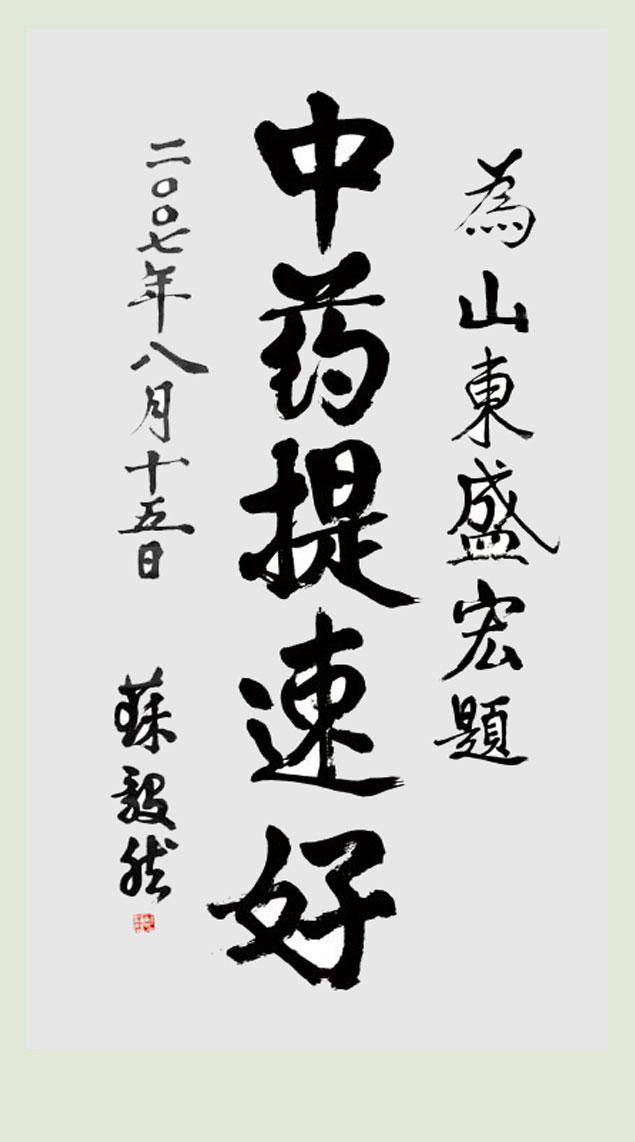 為山東盛宏題
中药提速好
二〇〇七年八月十五日 蘇毅然